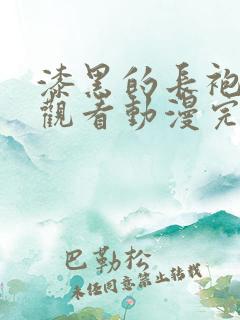 漆黑的長袍
觀看動漫完
巴勒松
未經同意禁止轉載